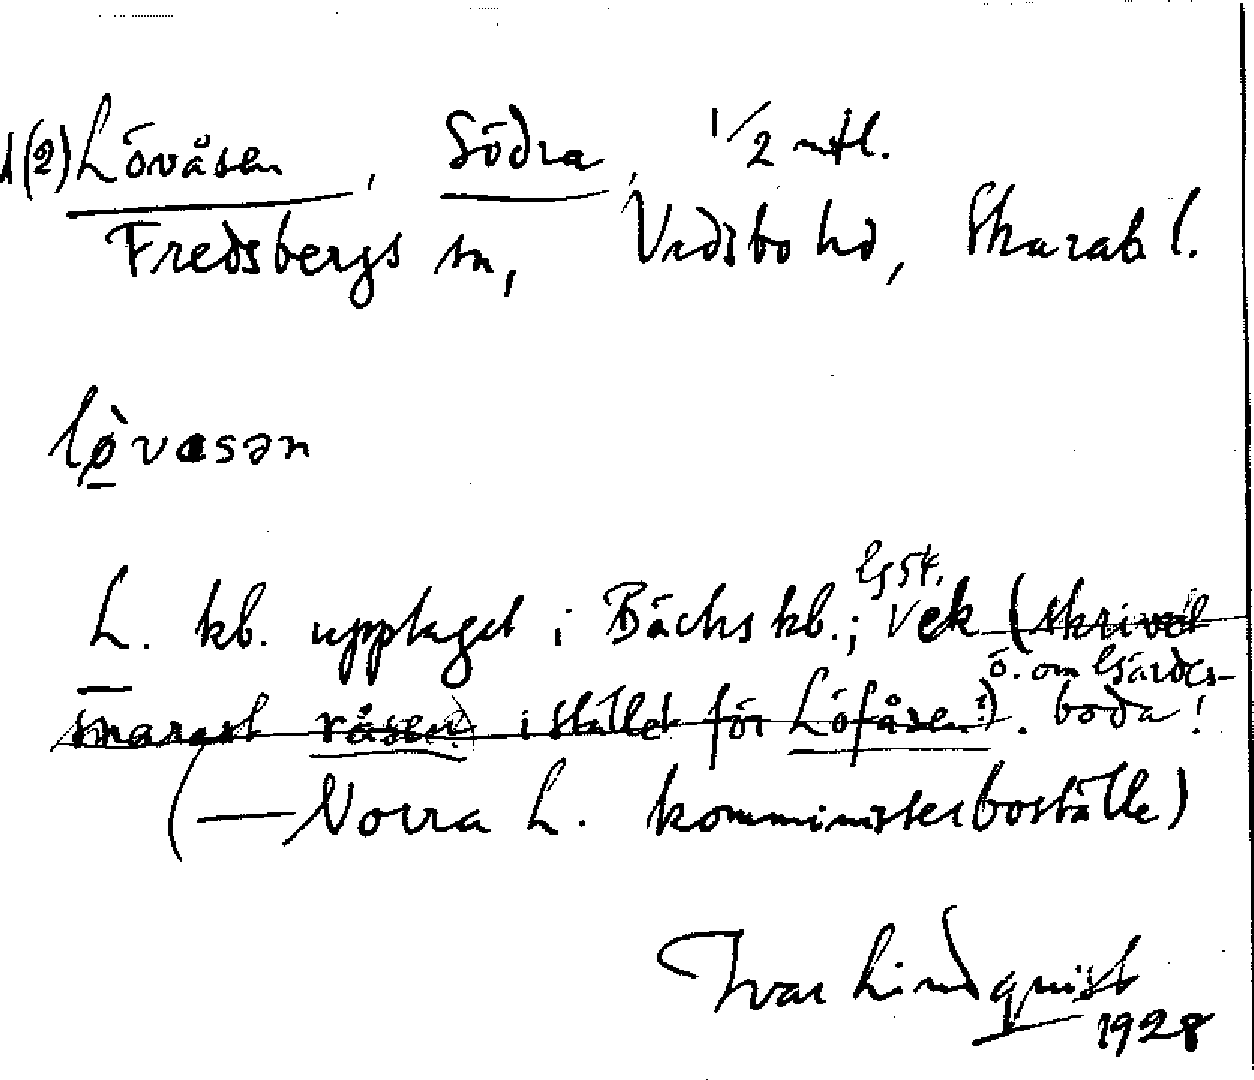 1(2) Lövåsen, Södra, 1/2 mtl.
Fredsbergs sn, Vadsbo hd, Skarab l.
lø̀vasən
L. kb. upptaget i Bäcks kb.; GS4. Vek (skrivet
ö. om Gärdes-
snarast våsen i stället för Löfåsen!). boda!
(— Norra L. komministerboställe)
Ivar Lindquist
1928